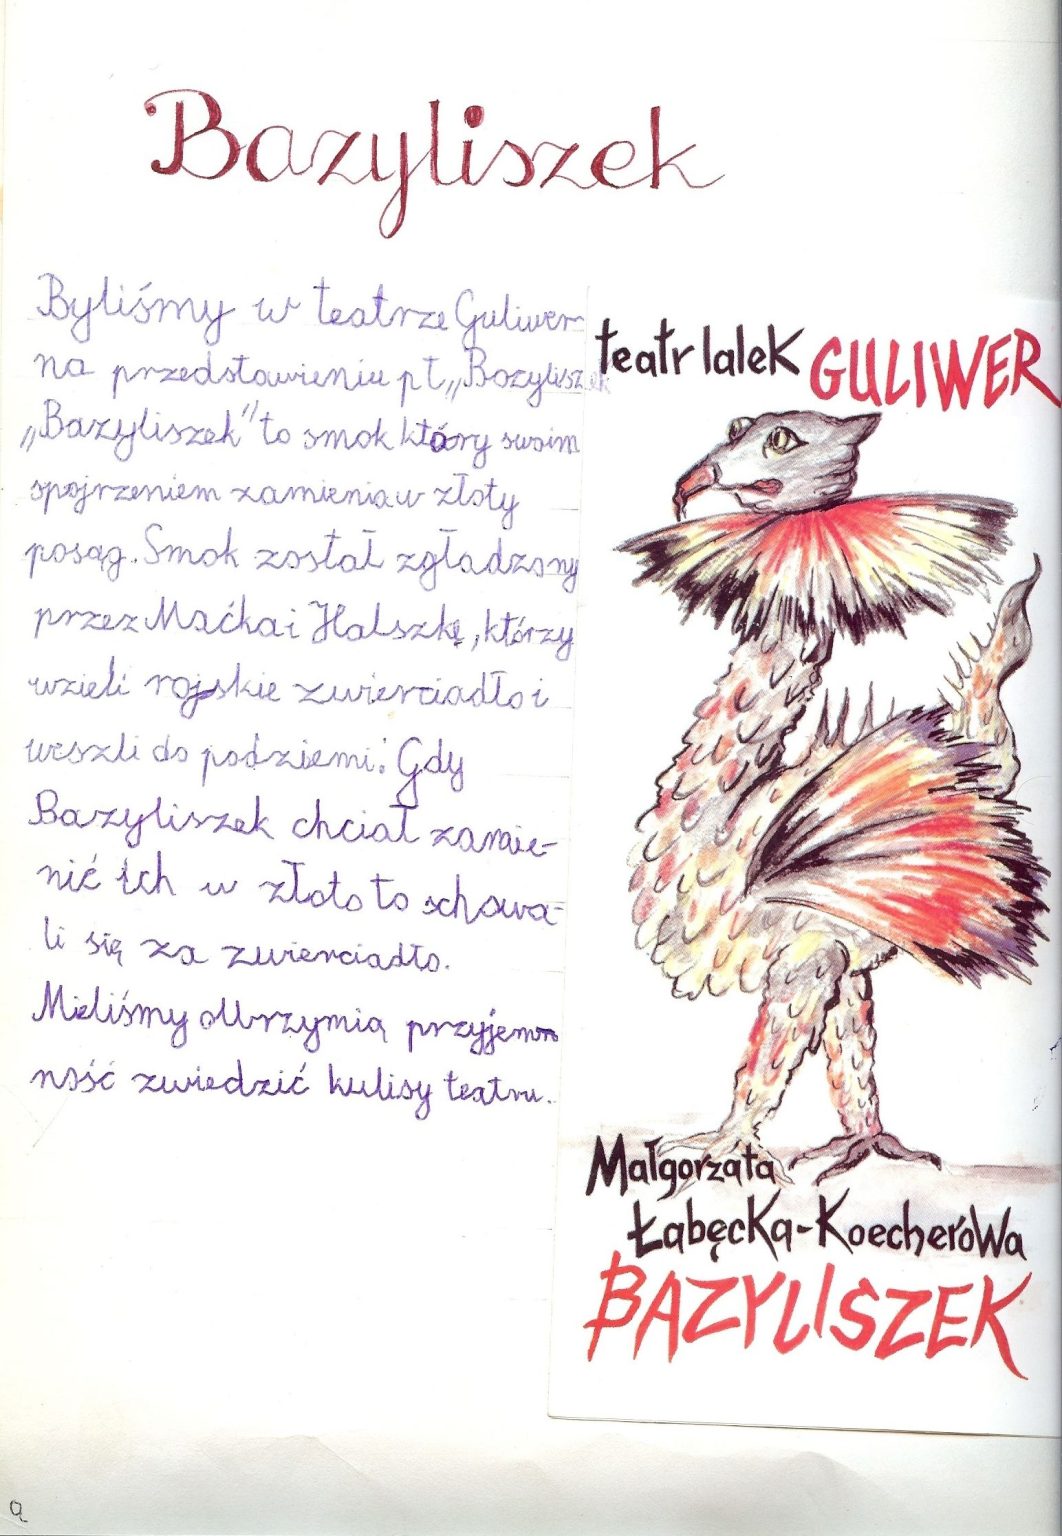 Bazyliszek
Byliśmy w teatrze Guliwer
na przedstawieniu pt „Bazyliszek
„Bazyliszek” to smok który swoim
spojrzeniem zamienia w złoty
posąg. Smok został zgładzony
przez Maćka i Halszkę, którzy
wzieli rajskie zwierciadło i
weszli do podziemi. Gdy
Bazyliszek chciał zamie-
nić ich w złoto to schowa-
li się za zwierciadło.
Mieliśmy olbrzymią przyjem
ność zwiedzić kulisy teatru.
teatr lalek GULIWER
Małgorzata
Łabęcka-Koecherowa
BAZYLISZEK